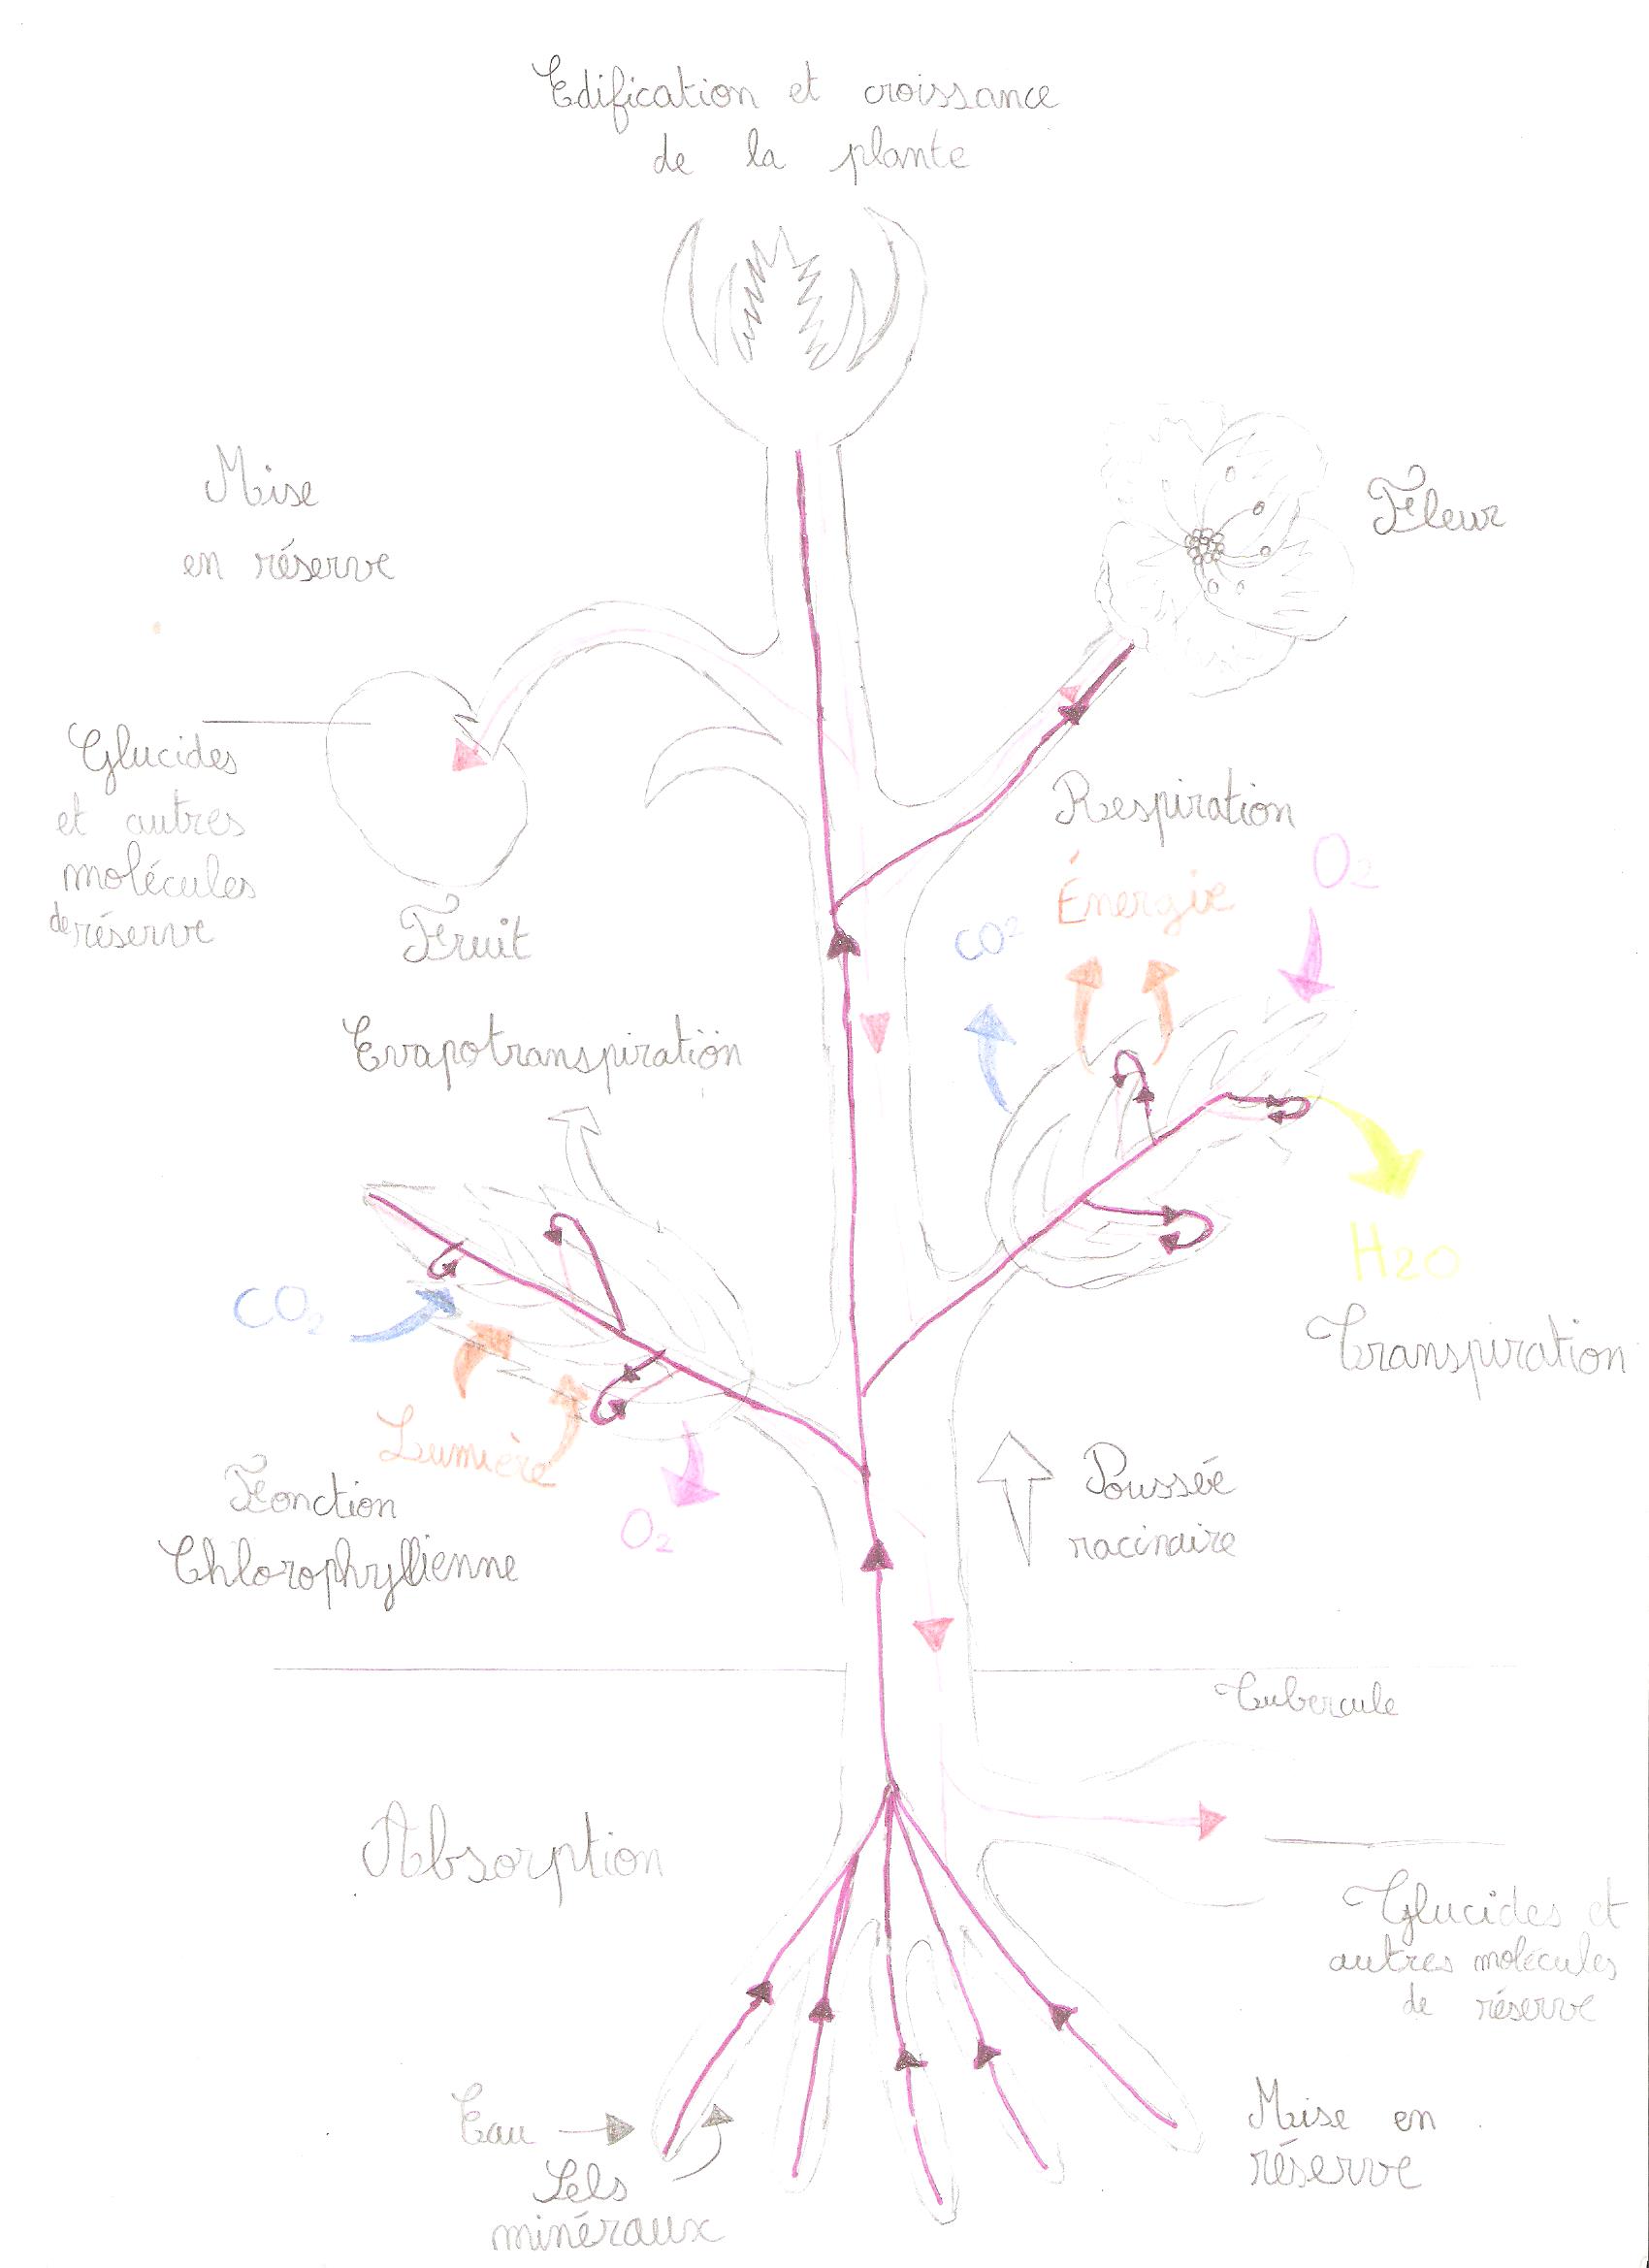 Edification et croissance
de la plante
Mise
en réserve
Fleur
Glucides
et autres
molécules
de réserve
Fruit
Respiration
Énergie
O2
CO2
Evapotranspiration
H2O
Transpiration
CO2
Lumière
O2
Fonction
Chlorophyllienne
Poussée
racinaire
Tubercule
Absorption
Glucides et
autres molécules
de réserve
Eau
Sels
minéraux
Mise en
réserve